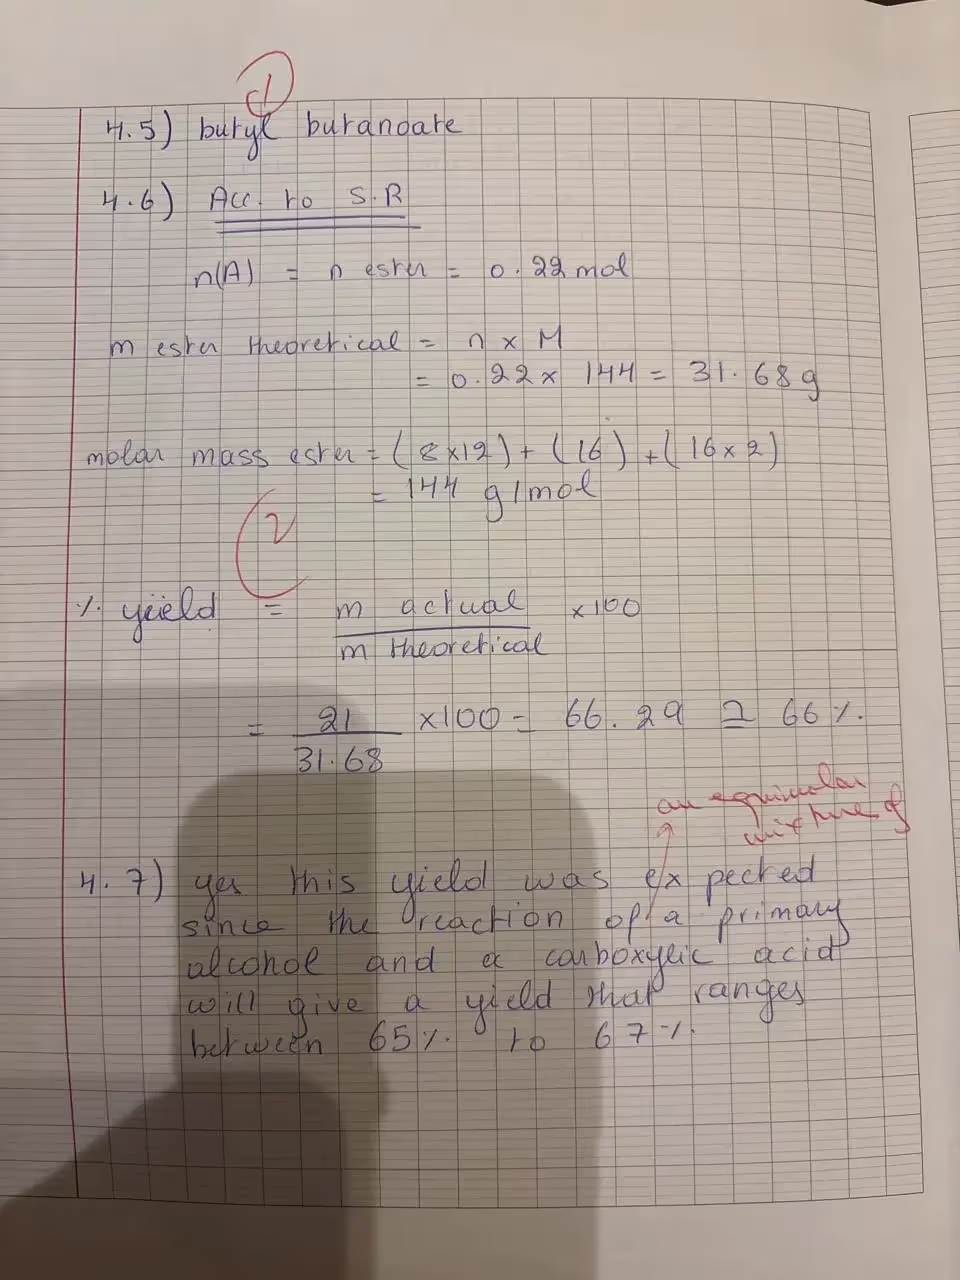 1
4.5) butyl butanoate
4.6) Acc. to S.R
n(A) = n ester = 0.22 mol
m ester theoretical = n x M
= 0.22 x 144 = 31.68 g
molar mass ester = (8x12) + (16) + (16x2)
= 144 g/mol
2
% yield = m actual x100
m theoretical
= 21 x100 = 66.29 ≃ 66%.
31.68
an equimolar
mixture of
4.7) yes this yield was expected
since the reaction of a primary
alcohol and a carboxylic acid
will give a yield that ranges
between 65% to 67%.